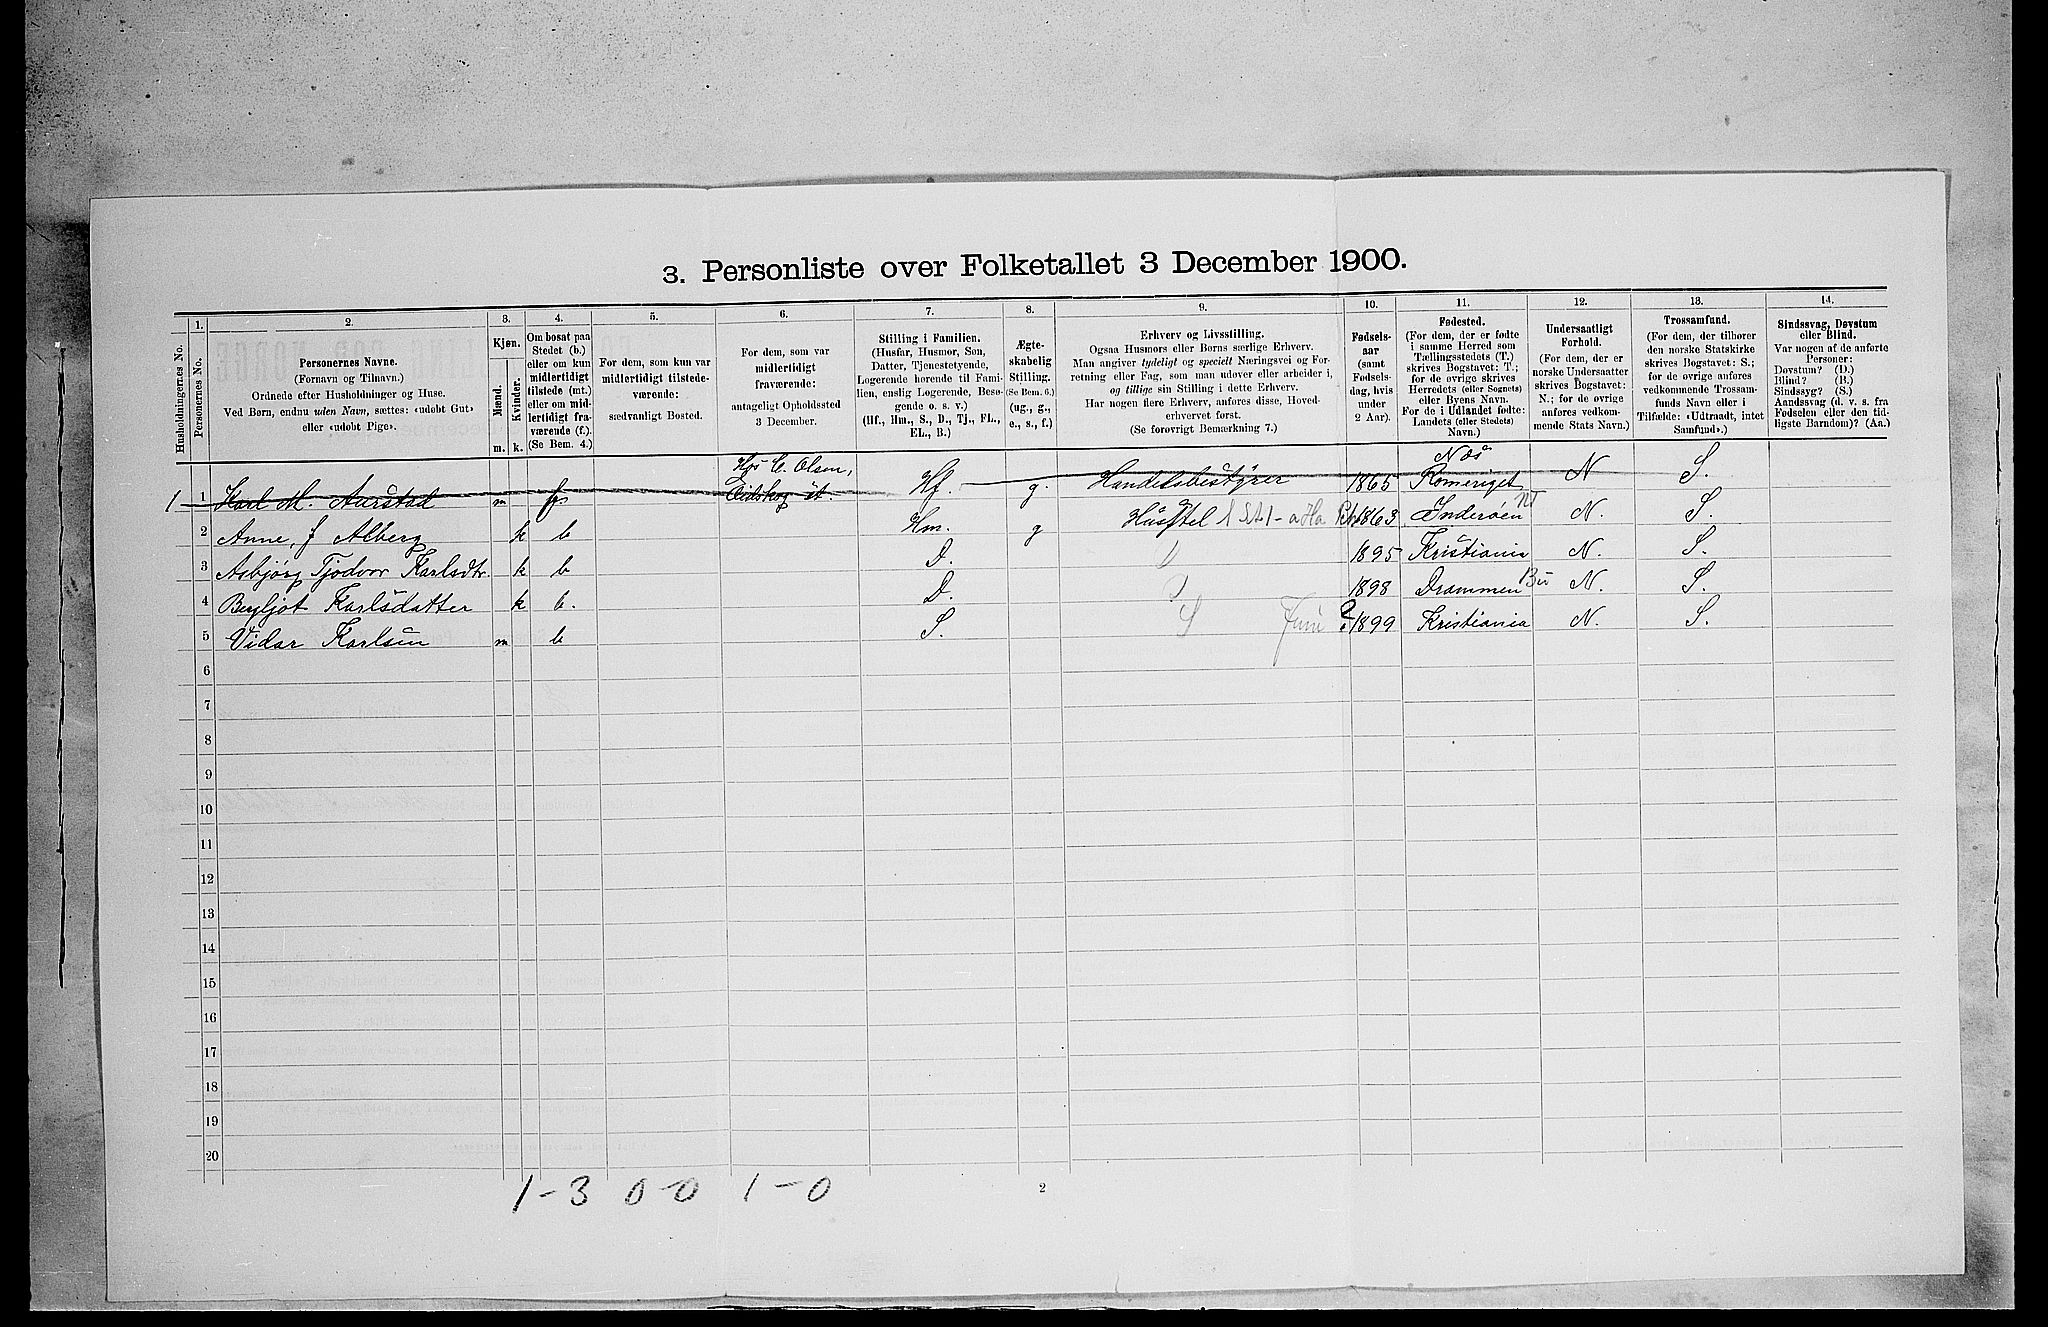 3. Personliste over Folketallet 3 December 1900.
Husholdningernes No.
1.
Personernes No.
2.
Personernes Navne.
(Fornavn og Tilnavn.)
Ordnede efter Husholdninger og Huse.
Ved Børn, endnu uden Navn, sættes: «udøbt Gut»
eller «udøbt Pige».
3.
Kjøn.
Mænd.
Kvinder.
m. k.
4.
Om bosat paa
Stedet (b.)
eller om kun
midlertidigt
tilstede (mt.)
eller om mid-
lertidigt fra-
værende (f.).
(Se Bem. 4.)
5.
For dem, som kun var
midlertidigt tilstede-
værende:
sædvanligt Bosted.
6.
For dem, som var
midlertidigt
fraværende:
antageligt Opholdssted
3 December.
7.
Stilling i Familien.
(Husfar, Husmor, Søn,
Datter, Tjenestetyende,
Logerende hørende til Fami-
lien, enslig Logerende, Besø-
gende o. s. v.)
(Hf., Hm., S., D., Tj., FL.,
EL., B.)
8.
Ægte-
skabelig
Stilling.
(Se Bem. 6.)
(ug., g.,
e., s., f.)
9.
Erhverv og Livsstilling.
Ogsaa Husmors eller Børns særlige Erhverv.
Man angiver tydeligt og specielt Næringsvei og For-
retning eller Fag, som man udøver eller arbeider i,
og tillige sin Stilling i dette Erhverv.
Har nogen flere Erhverv, anføres disse, Hoved-
erhvervet først.
(Se forøvrigt Bemærkning 7.)
10.
Fødsels-
aar
(samt
Fødsels-
dag, hvis
under
2 Aar).
11.
Fødested.
(For dem, der er fødte
i samme Herred som
Tællingsstedets (T.)
skrives Bogstavet: T.;
for de øvrige skrives
Herredets (eller Sognets)
eller Byens Navn.
For de i Udlandet fødte:
Landets (eller Stedets)
Navn.)
12.
Undersaatligt
Forhold.
(For dem, der er
norske Undersaatter
skrives Bogstavet:
N.; for de øvrige
anføres vedkom-
mende Stats Navn.)
13.
Trossamfund.
(For dem, der tilhører
den norske Statskirke
skrives Bogstavet: S.;
for de øvrige anføres
vedkommende Trossam-
funds Navn eller i
Tilfælde: «Udtraadt, intet
Samfund».)
14.
Sindssvag, Døvstum
eller Blind.
Var nogen af de anførte
Personer:
Døvstum? (D.)
Blind? (B.)
Sindssyg? (S.)
Aandssvag (d. v. s. fra
Fødselen eller den tid-
ligste Barndom)? (Aa.)
Hos C. Olsen,
Næs
1 1 Karl M. Aarstad m f. Eidskog st. Hf. g. Handelsbestyrer 1865 Romeriget N S.
2 Anne, f Alberg k b Hm. g Husstel 1863 Inderøen NT N. S.
3 Asbjørg Tjodvor Karlsdtr. k b D. 1895 Kristiania N. S.
4 Bergljot Karlsdatter k b. D. 1898 Drammen Bu N. S.
5 Vidar Karlsen m b S. S Juni 1899 Kristiania N. S.
6
7
8
9
10
11
12
13
14
15
16
17
18
19
20
1-3 0-0 1-0
2